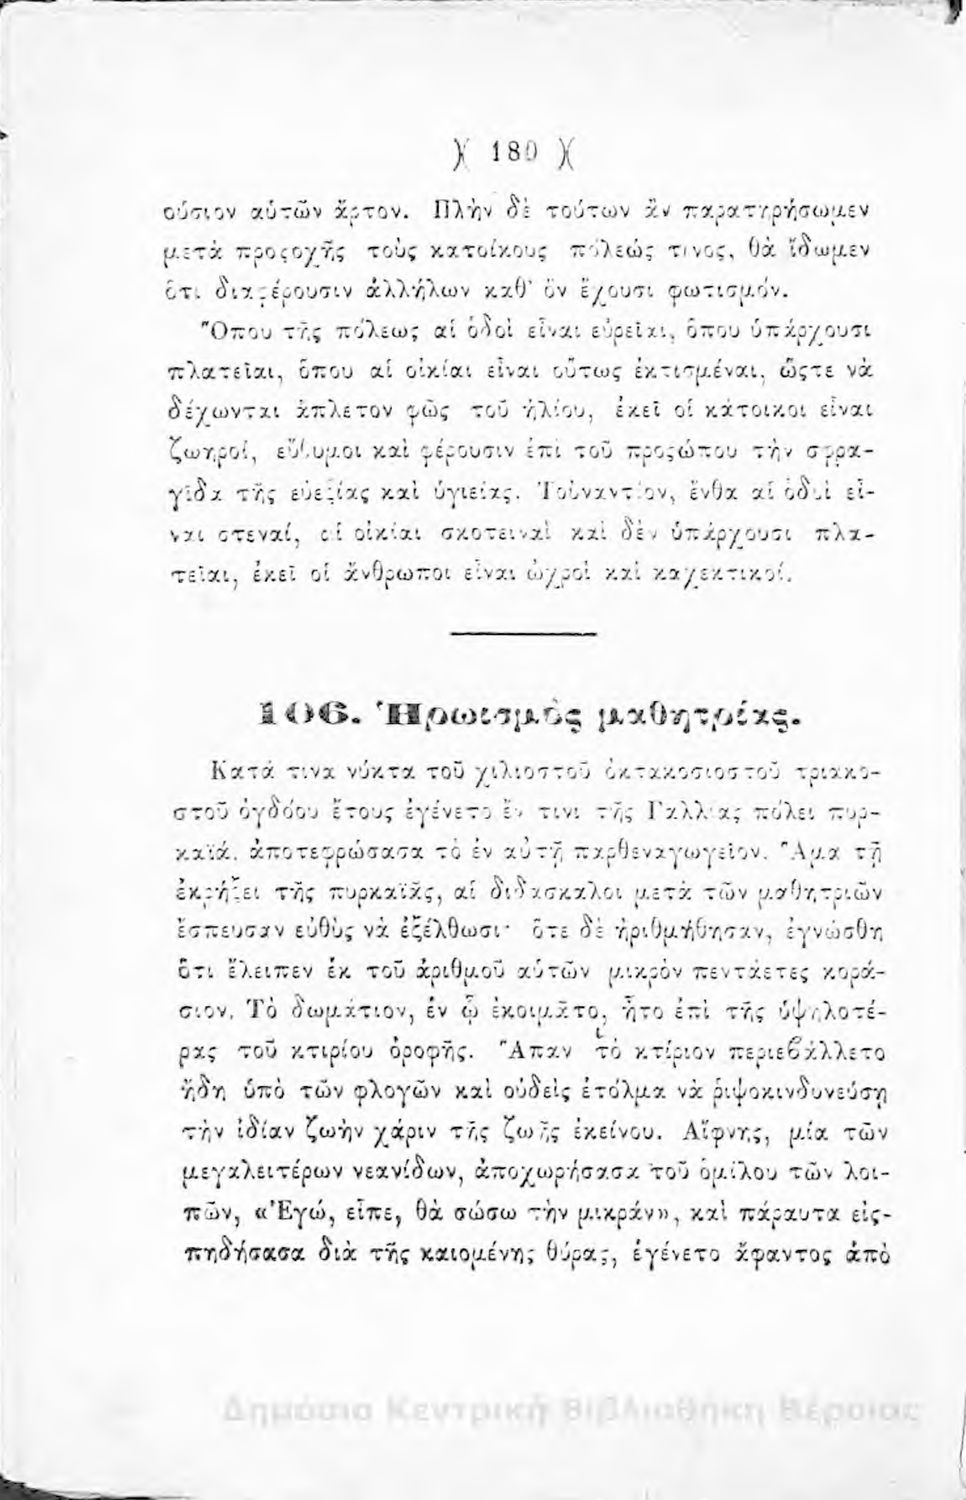 )( 180 )(
ούσιον αὐτῶν ἄρτον. Πλὴν δὲ τούτων ἂν παρατηρήσωμεν
μετὰ προςοχῆς τοὺς κατοίκους πόλεώς τινος, θὰ ἴδωμεν
ὅτι διαφέρουσιν ἀλλήλων καθ' ὃν ἔχουσι φωτισμόν.
Ὅπου τῆς πόλεως αἱ ὁδοὶ εἶναι εὐρεῖαι, ὅπου ὑπάρχουσι
πλατεῖαι, ὅπου αἱ οἰκίαι εἶναι οὕτως ἐκτισμέναι, ὥςτε νὰ
δέχωνται ἄπλετον φῶς τοῦ ἡλίου, ἐκεῖ οἱ κάτοικοι εἶναι
ζωηροί, εὔθυμοι καὶ φέρουσιν ἐπὶ τοῦ προςώπου τὴν σφρα-
γῖδα τῆς εὐεξίας καὶ ὑγιείας. Τοὐναντίον, ἔνθα αἱ ὁδοὶ εἶ-
ναι στεναί, αἱ οἰκίαι σκοτειναὶ καὶ δὲν ὑπάρχουσι πλα-
τεῖαι, ἐκεῖ οἱ ἄνθρωποι εἶναι ὠχροὶ καὶ καχεκτικοί.
106. Ἡρωισμὸς μαθητρίας.
Κατά τινα νύκτα τοῦ χιλιοστοῦ ὀκτακοσιοστοῦ τριακο-
στοῦ ὀγδόου ἔτους ἐγένετο ἔν τινι τῆς Γαλλίας πόλει πυρ-
καϊά, ἀποτεφρώσασα τὸ ἐν αὐτῇ παρθεναγωγεῖον. Ἅμα τῇ
ἐκρήξει τῆς πυρκαϊᾶς, αἱ διδασκαλοι μετὰ τῶν μαθητριῶν
ἔσπευσαν εὐθὺς νὰ ἐξέλθωσι· ὅτε δὲ ἠριθμήθησαν, ἐγνώσθη
ὅτι ἔλειπεν ἐκ τοῦ ἀριθμοῦ αὐτῶν μικρὸν πενταετες κορά-
σιον. Τὸ δωμάτιον, ἐν ᾧ ἐκοιμᾶτο, ἦτο ἐπὶ τῆς ὑψηλοτέ-
ρας τοῦ κτιρίου ὀροφῆς. Ἅπαν τὸ κτίριον περιεβάλλετο
ἤδη ὑπὸ τῶν φλογῶν καὶ οὐδεὶς ἐτόλμα νὰ ῥιψοκινδυνεύσῃ
τὴν ἰδίαν ζωὴν χάριν τῆς ζωῆς ἐκείνου. Αἴφνης, μία τῶν
μεγαλειτέρων νεανίδων, ἀποχωρήσασα τοῦ ὁμίλου τῶν λοι-
πῶν, «Ἐγώ, εἶπε, θὰ σώσω τὴν μικράν», καὶ πάραυτα εἰς-
πηδήσασα διὰ τῆς καιομένης θύρας, ἐγένετο ἄφαντος ἀπὸ
Δημόσια Κεντρική Βιβλιοθήκη Βέροιας